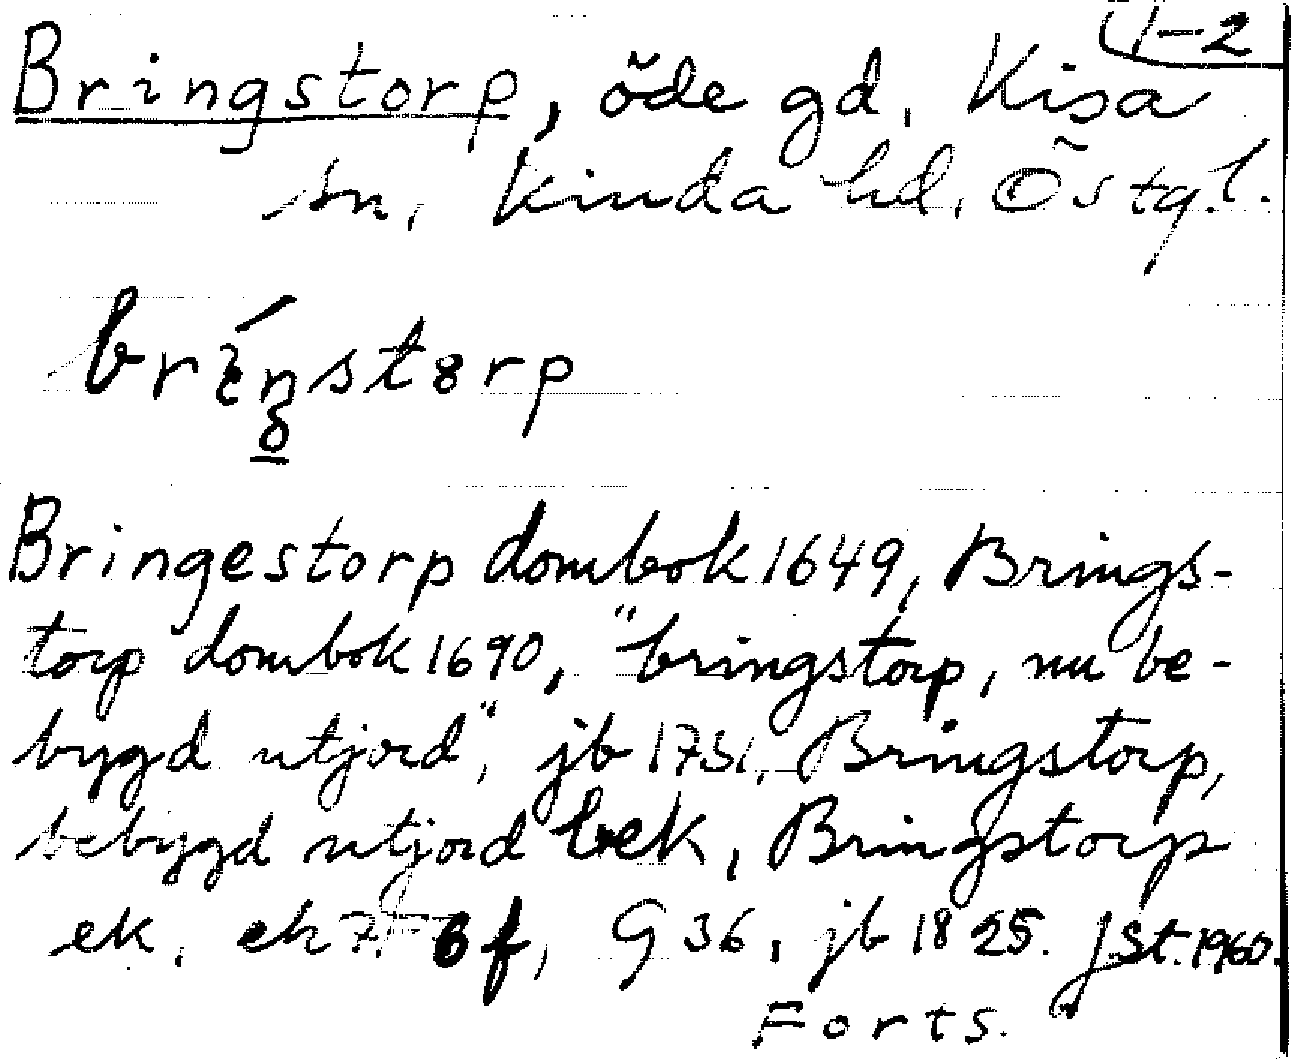 1-2
Bringstorp, öde gd, Kisa
sn, Kinda hd, Östg.l.
Bringestorp dombok 1649, Brings-
torp dombok 1690, "bringstorp, nu be-
bygd utjord", jb 1751, Bringstorp,
bebygd utjord bek, Bringstorp
ek, ek 7F 6f, G 36, jb 1825. JSt. 1960.
Forts.